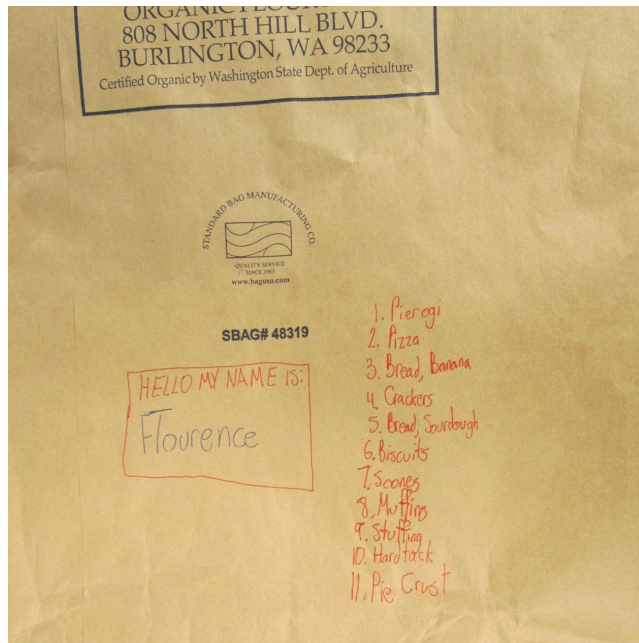 ORGANIC
808 NORTH HILL BLVD.
BURLINGTON, WA 98233
Certified Organic by Washington State Dept. of Agriculture
STANDARD BAG MANUFACTURING CO.
QUALITY SERVICE
SINCE
www.bagusa.com
SBAG# 48319
HELLO MY NAME IS:
Flourence
1. Pierogi
2. Pizza
3. Bread, Banana
4. Crackers
5. Bread, Sourdough
6. Biscuits
7. Scones
8. Muffins
9. Stuffing
10. Hardtack
11. Pie Crust